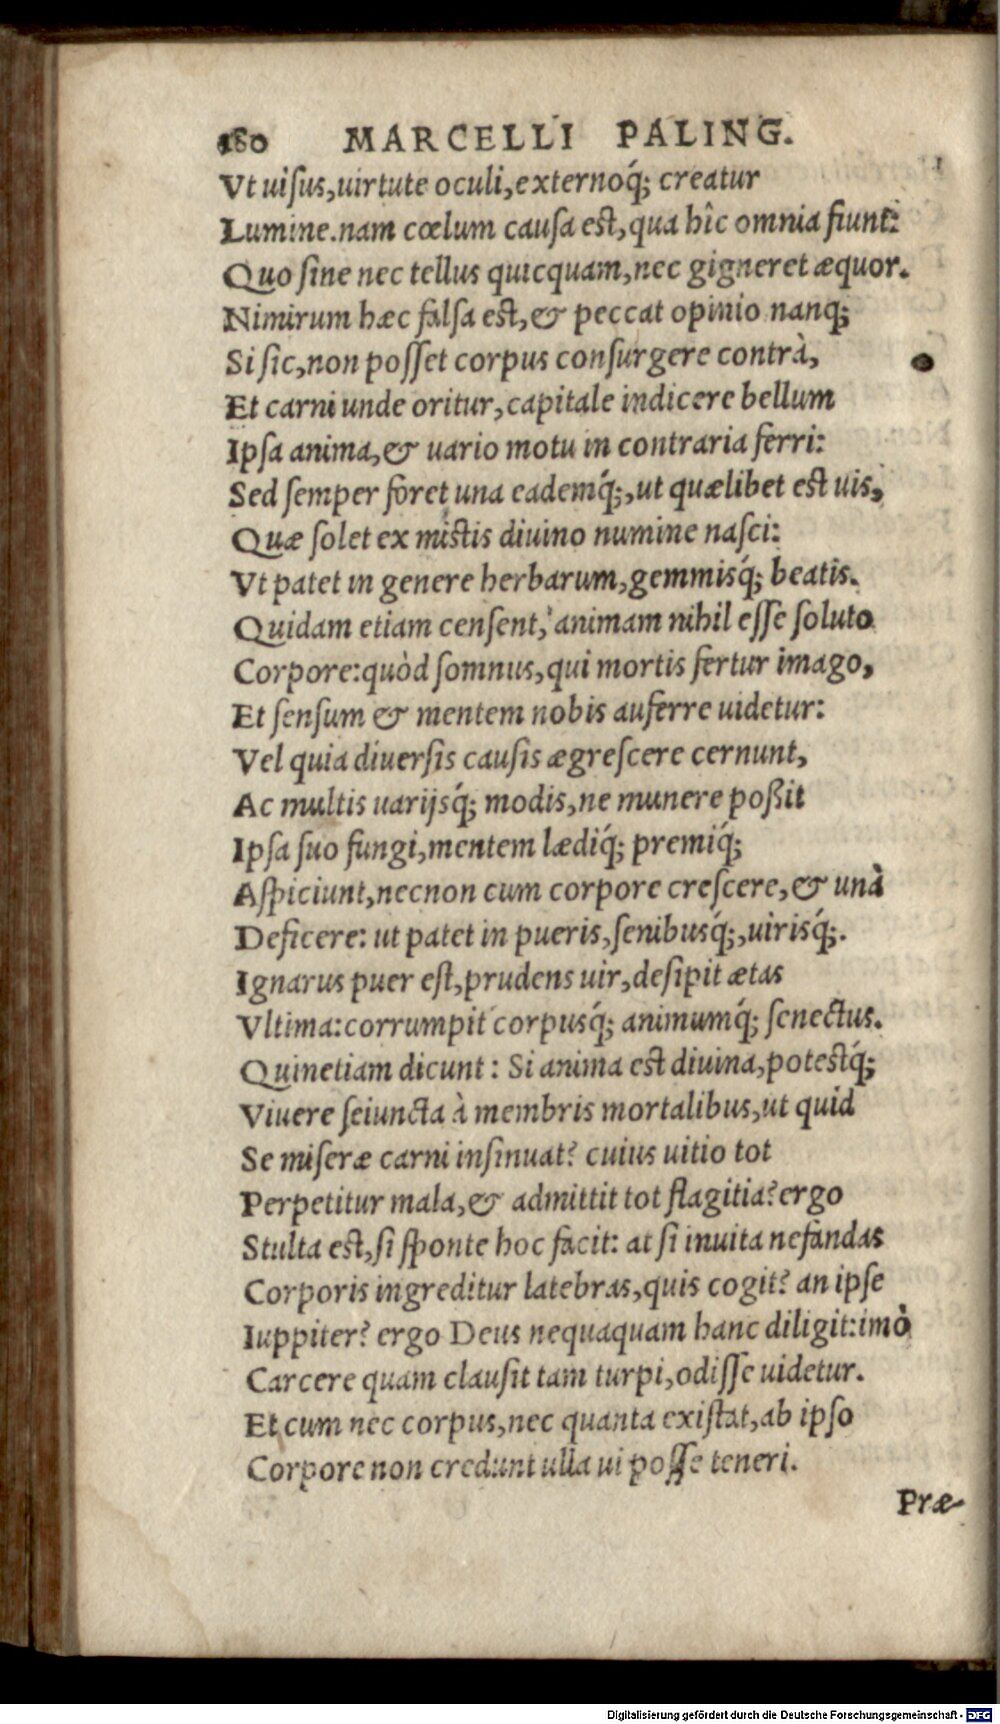 180 MARCELLI PALING.
Vt uiſus,uirtute oculi,externoq́; creatur
Lumine.nam cœlum cauſa eſt,qua hîc omnia fiunt:
Quo ſine nec tellus quicquam,nec gigneret æquor.
Nimirum hæc falſa eſt,& peccat opinio nanq;
Si ſic,non poſſet corpus conſurgere contrà,
Et carni unde oritur,capitale indicere bellum
Ipſa anima,& uario motu in contraria ferri:
Sed ſemper foret una eademq́;,ut quælibet eſt uis,
Quæ ſolet ex miſtis diuino numine naſci:
Vt patet in genere herbarum,gemmisq́; beatis.
Quidam etiam cenſent, animam nihil eſſe ſoluto
Corpore:quòd ſomnus,qui mortis fertur imago,
Et ſenſum & mentem nobis auferre uidetur:
Vel quia diuerſis cauſis ægreſcere cernunt,
Ac multis uarijsq́; modis,ne munere poßit
Ipſa ſuo fungi,mentem lædiq́; premiq́;
Aſpiciunt,necnon cum corpore creſcere,& unà
Deficere: ut patet in pueris,ſenibusq́;,uirisq́;.
Ignarus puer eſt,prudens uir,deſipit ætas
Vltima:corrumpit corpusq́; animumq́; ſenectus.
Quinetiam dicunt: Si anima eſt diuina,poteſtq́;
Viuere ſeiuncta à membris mortalibus,ut quid
Se miſeræ carni inſinuat? cuius uitio tot
Perpetitur mala,& admittit tot flagitia? ergo
Stulta eſt,ſi ſponte hoc facit: at ſi inuita nefandas
Corporis ingreditur latebras,quis cogit? an ipſe
Iuppiter? ergo Deus nequaquam hanc diligit:imò
Carcere quam clauſit tam turpi,odiſſe uidetur.
Et cum nec corpus,nec quanta exiſtat,ab ipſo
Corpore non credunt ulla ui poſſe teneri.
Præ-
Digitalisierung gefördert durch die Deutsche Forschungsgemeinschaft - DFG